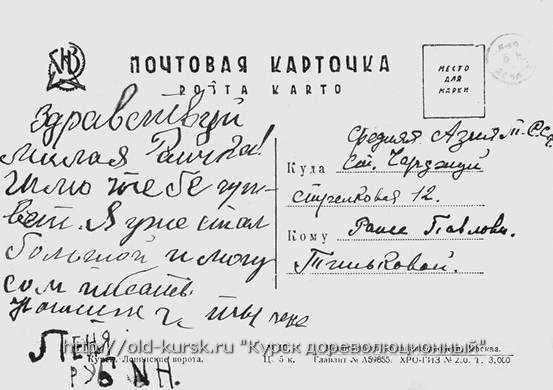 ПОЧТОВАЯ КАРТОЧКА
POŜTA KARTO
МЕСТО
ДЛЯ
МАРКИ
Здравствуй
милая Раичка!
Шлю тебе при-
вет. Я уже стал
большой и могу
сам писать
твой
ЛЕНЯ
Средняя Азия Т.С.С.Р
Куда ст. Чарджуй
стрелковая 12.
Кому Раисе Павловн.
Тиньковой.
http://old-kursk.ru "Курск дореволюционный"
Ц. 5 к. Главлит № А59855. ХРО-ГИЗ № 2.0. Т. 3.000